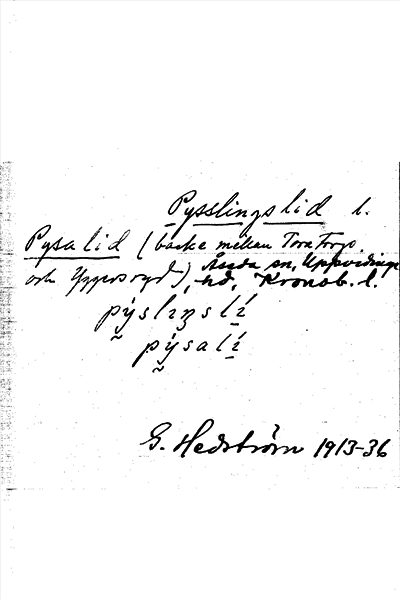 Pysslingslid l.
Pysalid (backe mellan Tora Torp
och Yggersryd), Åseda sn, Uppvidinge
hd, Kronob. l.
pýslıŋslí
pýsalí
G. Hedström 1913-36